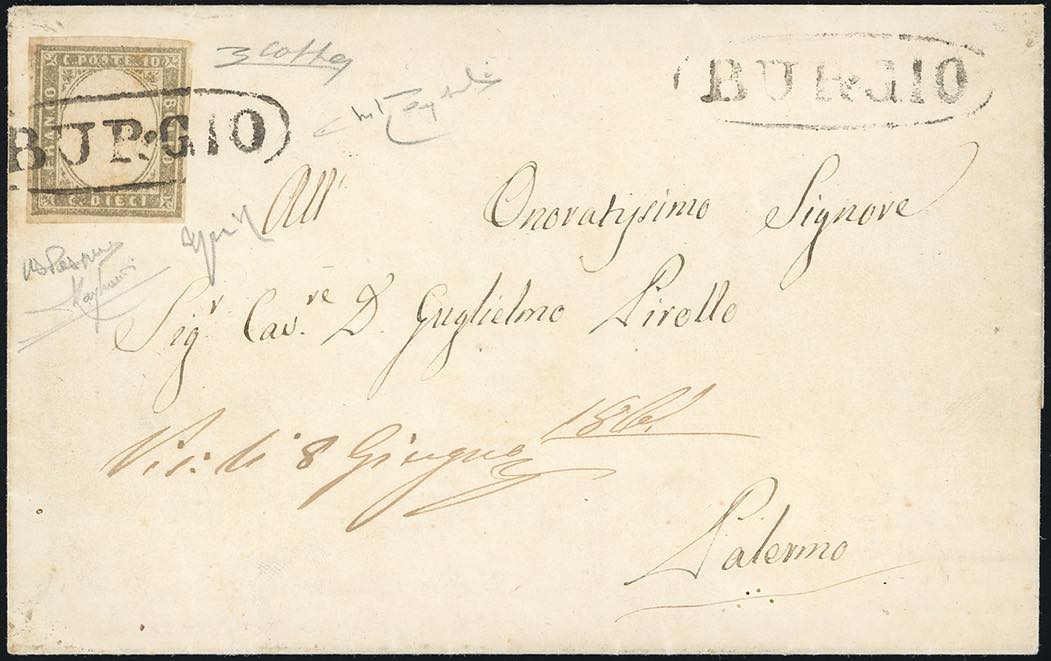 C. POSTE 10
FRANCO
BOLLO
C. DIECI
BURGIO
BURGIO
All' Onoratissimo Signore
Sigr Cav.re D. Guglielmo Pirollo
8 Giugno 1861
Palermo